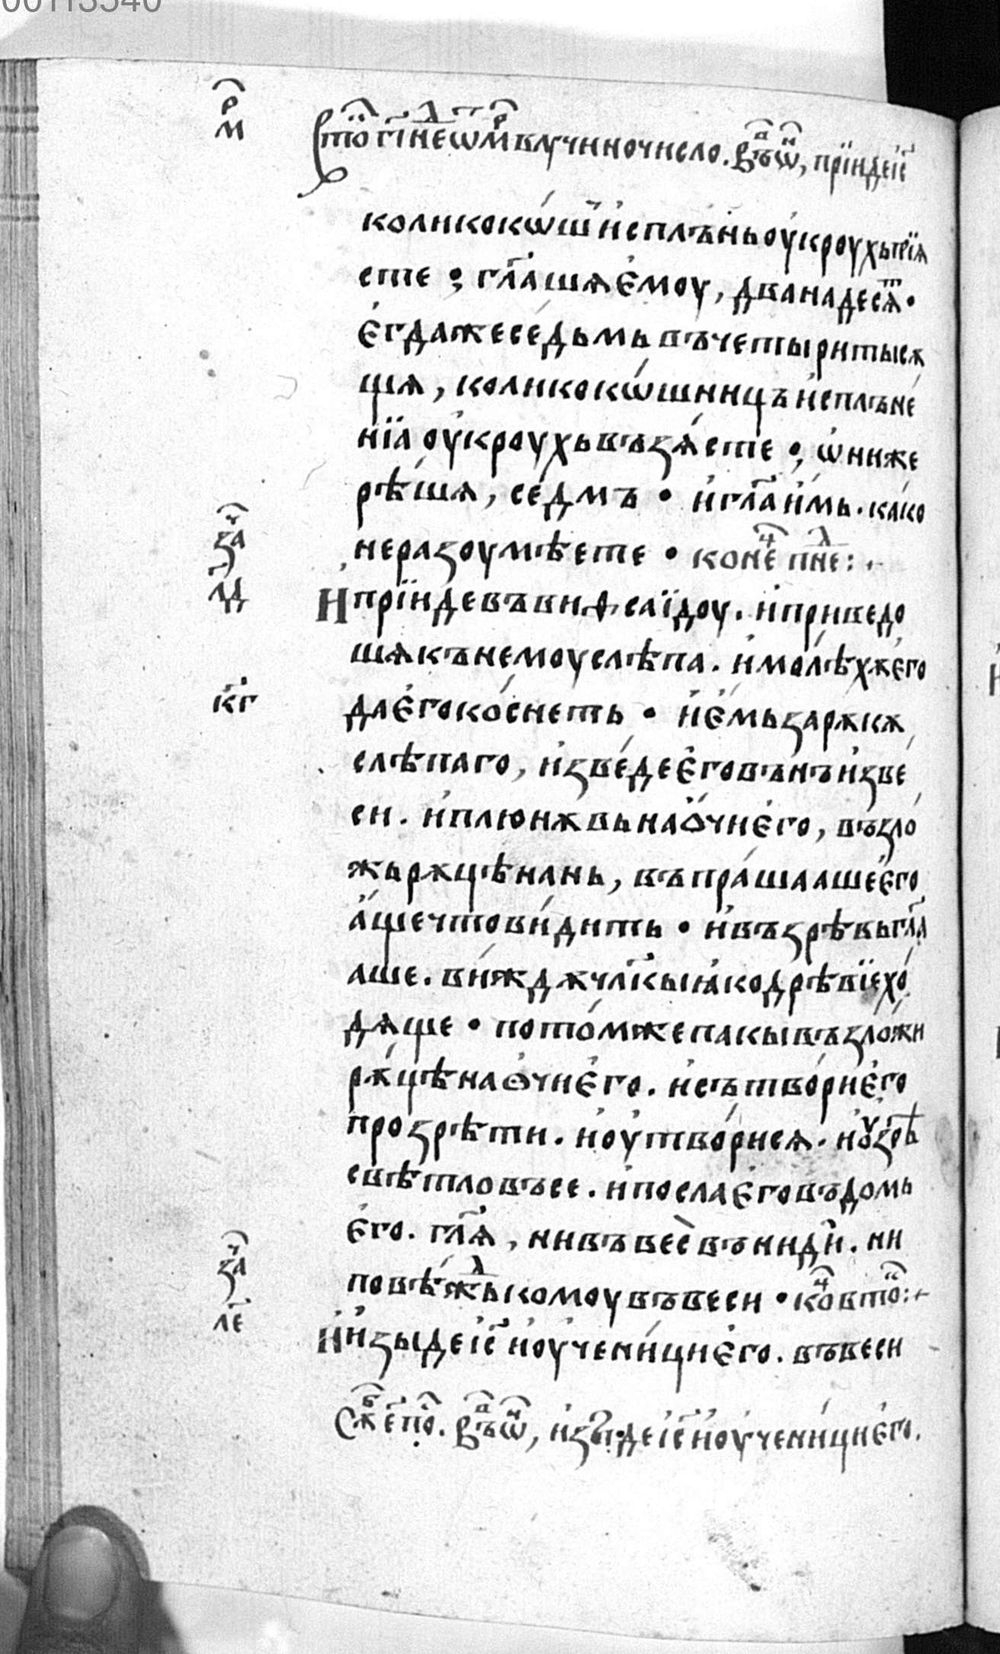 00113540
рⷨ
Сꙋⷮ гі҃ неⷣ ѡⷨ мрⷦ҇ въ лучи но число. въ ѡⷩ, прїиде іс҃
колико кѡ́шь и҆сплъ́нь оу҆кроухь прїꙗ
сте ⁏ гл҃ашѧ є҆моу, дванадесѧⷮ •
є҆гдаже се́дьмь въ четыри тысѫ
щѧ, колико кѡ́шницъ и҆сплъне́
нїа оу҆кроухь възѧ́сте ⁏ ѡ҆ни же
рѣ́шѧ, се́дмъ • и҆ гл҃а и҆́мь. ка́ко
не разоумѣете • конеⷰ҇ пнⷣе ⁘
заⷱ҇
лд҃
И҆ прїиде въ виѳсаїдоу. и҆ приведо
шѧ къ немоу слѣпа. и҆ молѣ́хѫ є҆го
кг҃
да є҆го ко́снеть • и҆ є҆́мь за рѫкѫ
слѣпаго, и҆зве́де є҆го вънъ и҆з ве
си. и҆ плюнѫвь на ѻ҆́чи є҆го, възло́
жь рѫцѣ на нь, въпра́шааше є҆го
а҆́ще что ви́дить • и҆ възрѣ́вь гл҃а
аше. ви́ждѫ чл҃кы ꙗ҆ко дрѣвїе хо́
дѧще • пото́мже пакы възложи
рѫ́цѣ на ѻ҆чи є҆го. и҆ сътво́ри є҆го
прозрѣти. и҆ оу҆тво́рисѧ. и҆ ꙋ҆зрѣ
свѣтло въсе. и҆ посла є҆го въ домь
є҆го. гл҃ѧ, ни въ ве́сь въниди. ни
заⷱ҇
повѣ́жⷣь комоу въ веси • коⷰ҇ втоⷬ҇ ⁘
ле҃
И҆ и҆зыде іс҃ и҆ оу҆чени́ци є҆го. въ веси
въ ѡⷩ, и҆зы́де іс҃ и҆ оу҆чени́ци є҆го.